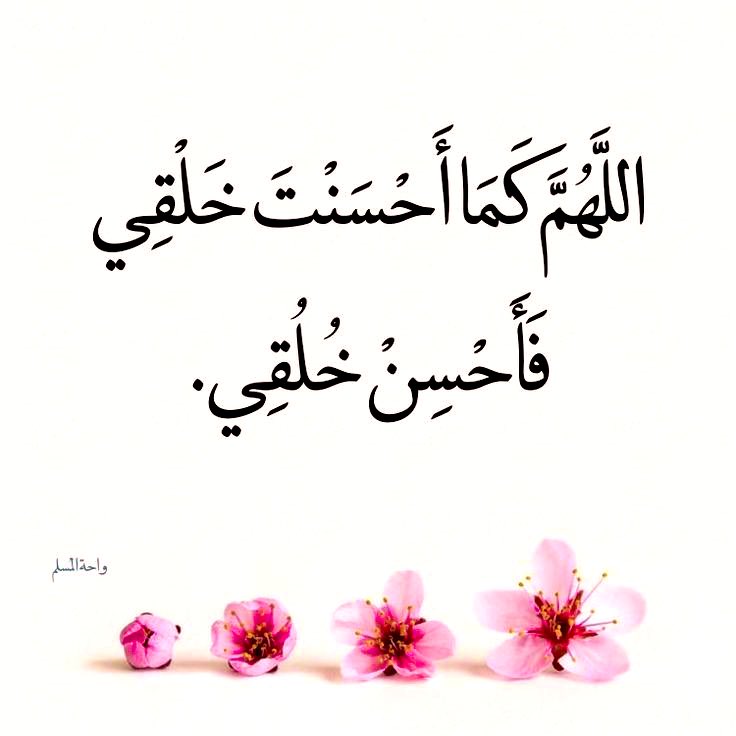 اللَّهُمَّ كَمَا أَحْسَنْتَ خَلْقِي
فَأَحْسِنْ خُلُقِي.
واحة المسلم